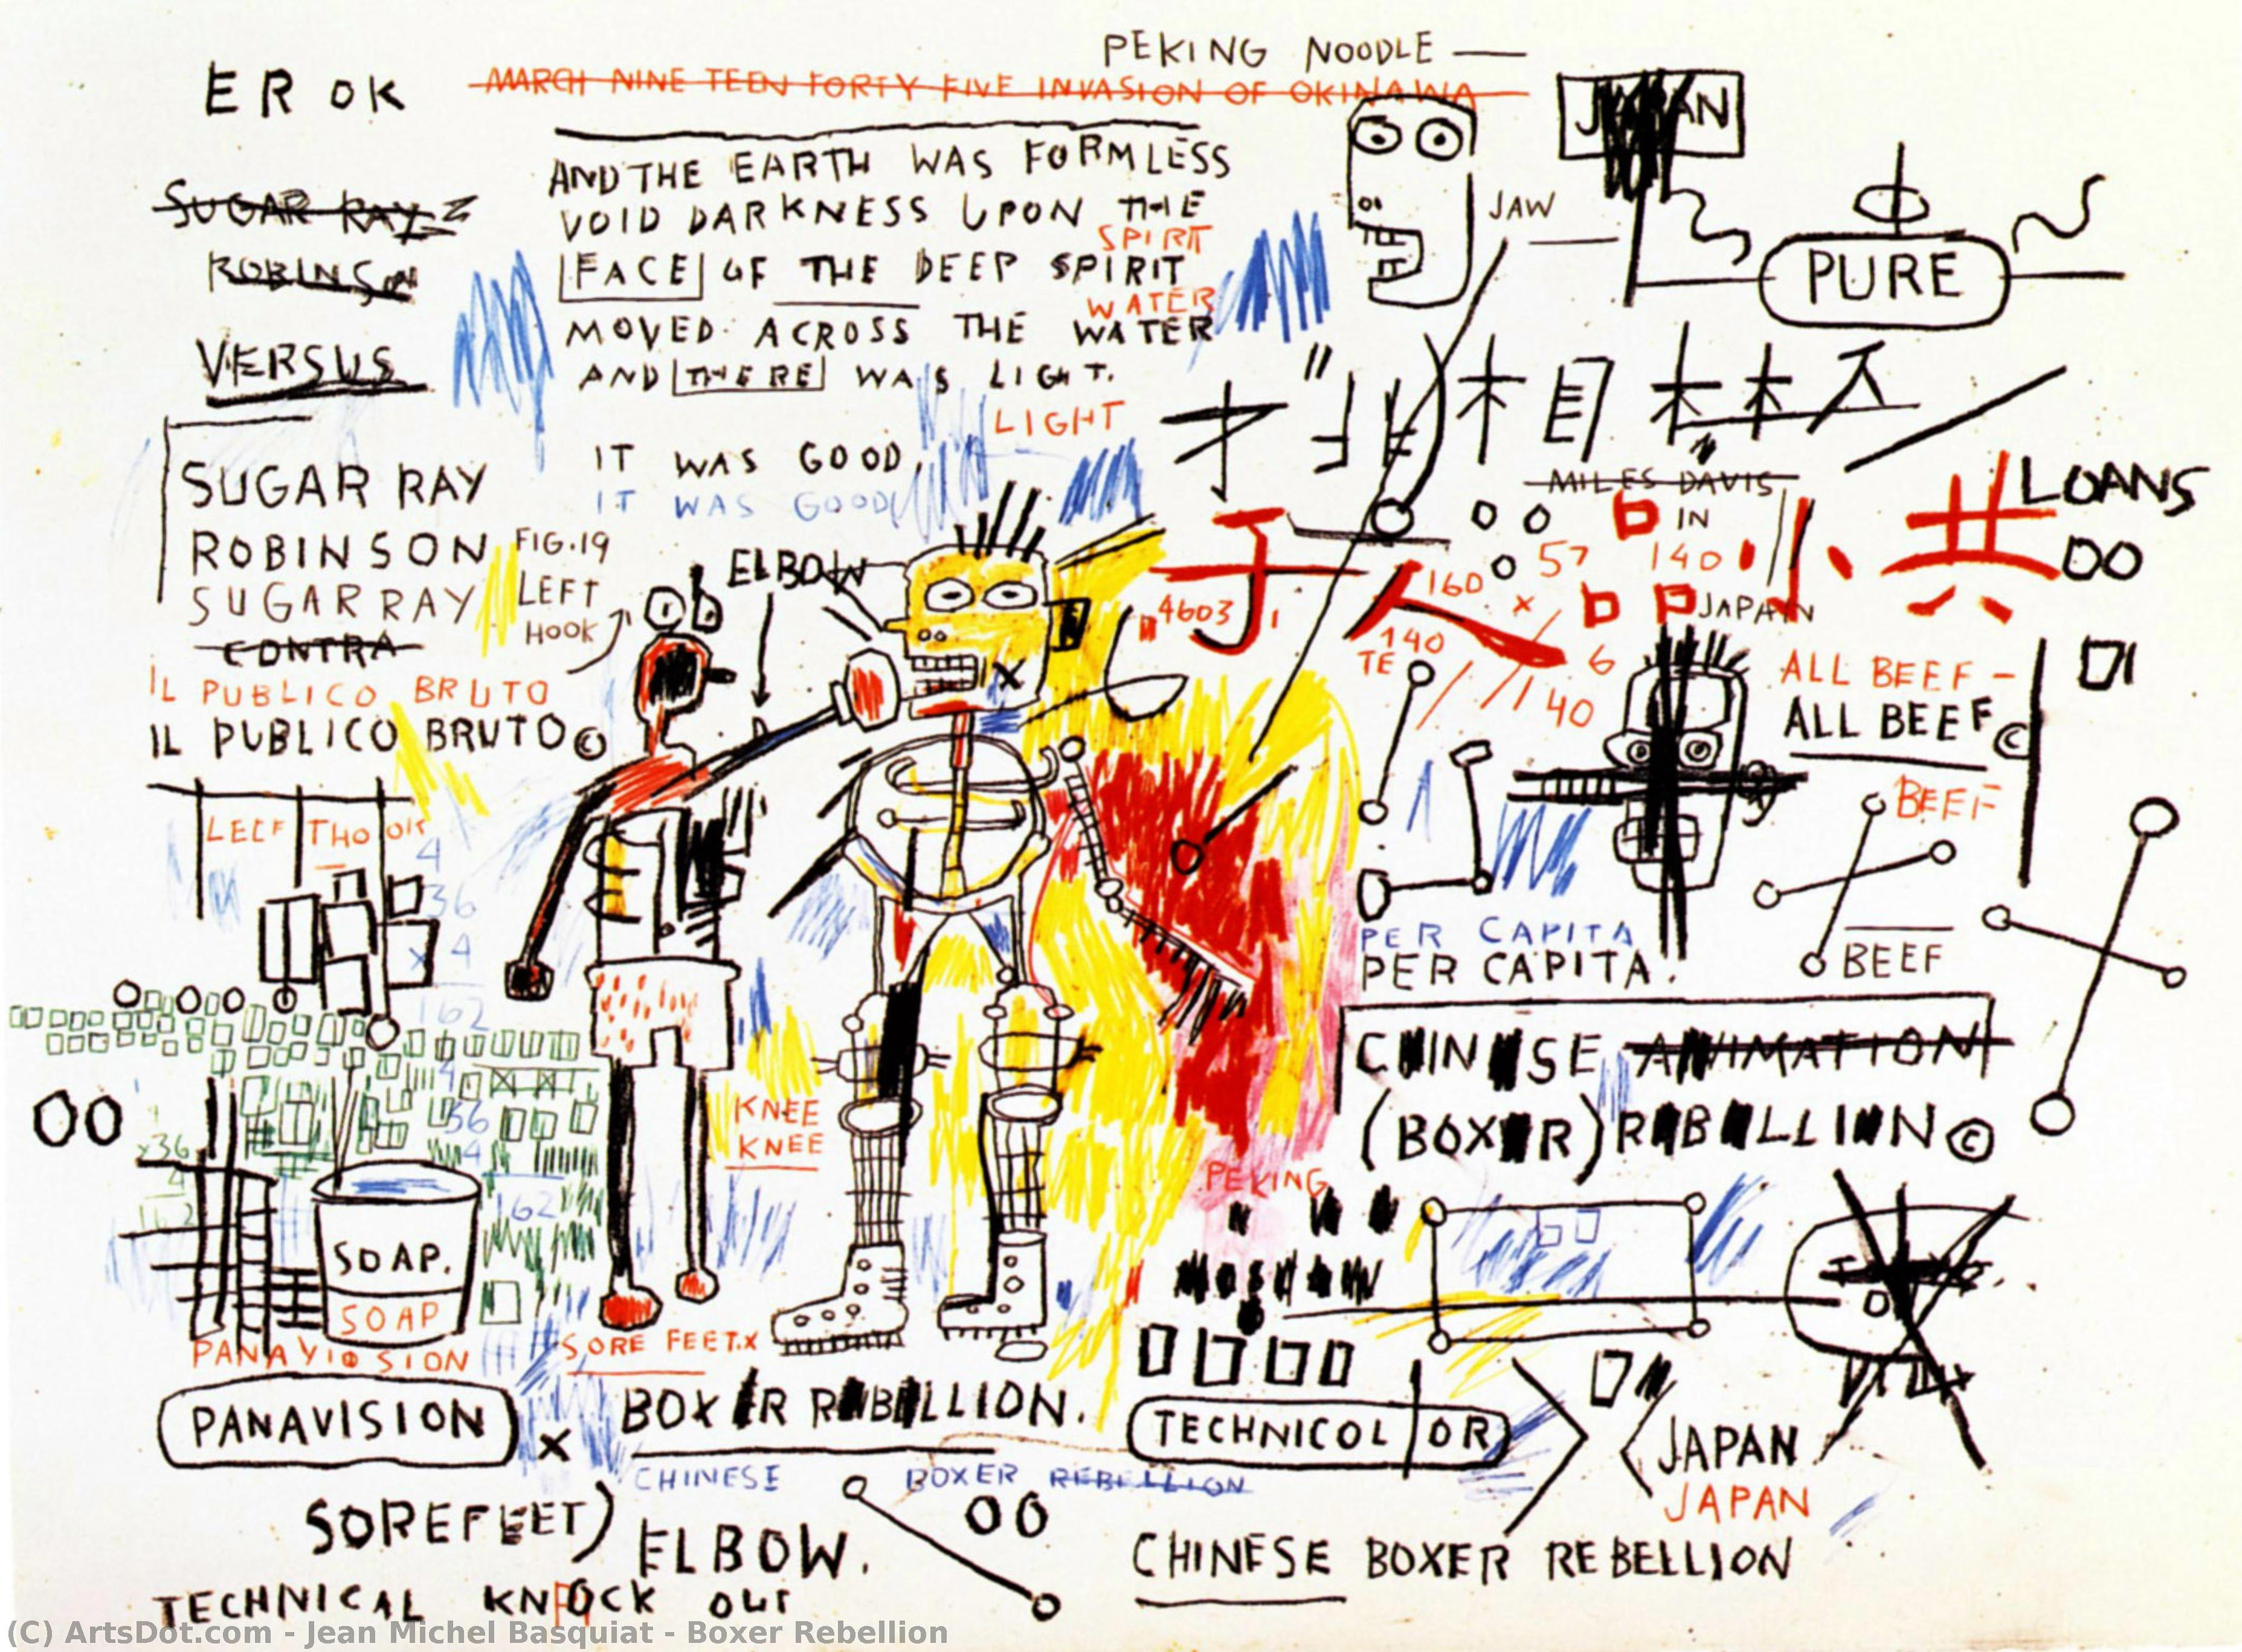 PEKING NOODLE —
EROK
MARCH NINE TEEN FORTY FIVE INVASION OF OKINAWA
JAPAN
AND THE EARTH WAS FORMLESS
VOID DARKNESS UPON THE
SPIRT
FACE OF THE DEEP SPIRIT
WATER
MOVED ACROSS THE WATER
AND THERE WAS LIGHT.
LIGHT
IT WAS GOOD,
IT WAS GOOD
SUGAR RAY
ROBINSON
VERSUS
SUGAR RAY
ROBINSON
SUGAR RAY
CONTRA
IL PUBLICO BRUTO
IL PUBLICO BRUTO©
FIG.19
LEFT
HOOK
ELBOW
JAW
PURE
MILES DAVIS
IN
JAPAN
LOANS
OO
于 人 口 小 共
口 口
57
140
160
x
4603
140
TE
6
140
ALL BEEF –
ALL BEEF©
BEEF
BEEF
PER CAPITA
PER CAPITA.
CHINESE ANIMATION
(BOXER) REBELLION©
LEEF THOOK
4
36
x 4
162
36
4
162
x36
4
162
OO
SOAP.
SOAP
KNEE
KNEE
PEKING
MOSCOW
PANAVISION
PANAVISION
SORE FEET.X
x
BOXER REBELLION.
CHINESE BOXER REBELLION
TECHNICOLOR
JAPAN
JAPAN
SOREFEET)
ELBOW.
OO
CHINESE BOXER REBELLION
TECHNICAL KNOCK OUT
(C) ArtsDot.com - Jean Michel Basquiat - Boxer Rebellion